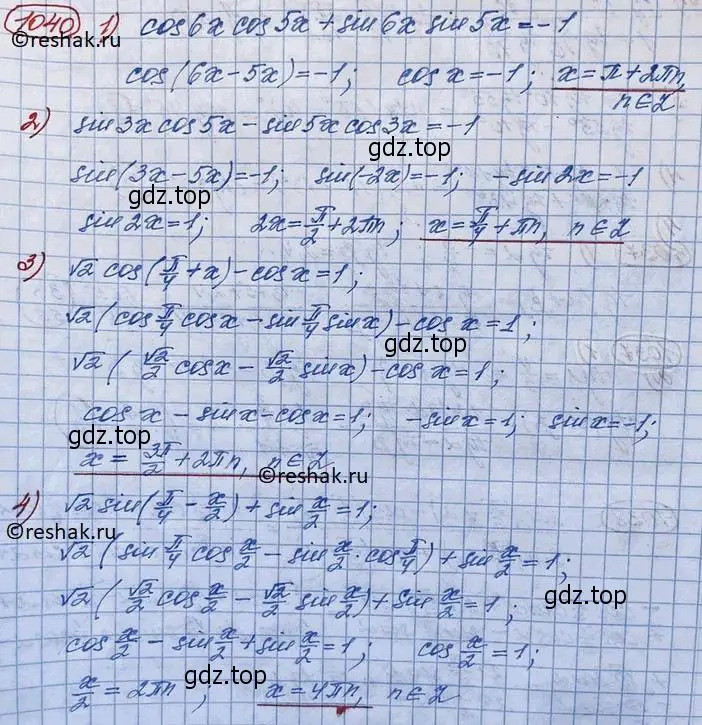 1040 1) cos6x cos5x + sin6x sin5x = -1
cos(6x-5x) = -1; cos x = -1; x = π + 2πn,
n∈Z
2) sin3x cos5x - sin5x cos3x = -1
sin(3x-5x) = -1; sin(-2x) = -1; -sin2x = -1
gdz.top
gdz.top
sin2x = 1; 2x = π/2 + 2πn; x = π/4 + πn, n∈Z
©reshak.ru
3) √2 cos(π/4 + x) - cos x = 1;
√2 (cos π/4 cos x - sin π/4 sin x) - cos x = 1;
gdz.top
√2 (√2/2 cos x - √2/2 sin x) - cos x = 1;
cos x - sin x - cos x = 1; -sin x = 1; sin x = -1;
gdz.top
gdz.top
x = 3π/2 + 2πn, n∈Z
4) √2 sin(π/4 - x/2) + sin x/2 = 1;
©reshak.ru
√2 (sin π/4 cos x/2 - sin x/2 · cos π/4) + sin x/2 = 1;
gdz.top
√2 (√2/2 cos x/2 - √2/2 sin x/2) + sin x/2 = 1;
gdz.top
cos x/2 - sin x/2 + sin x/2 = 1; cos x/2 = 1;
gdz.top
x/2 = 2πn; x = 4πn, n∈Z